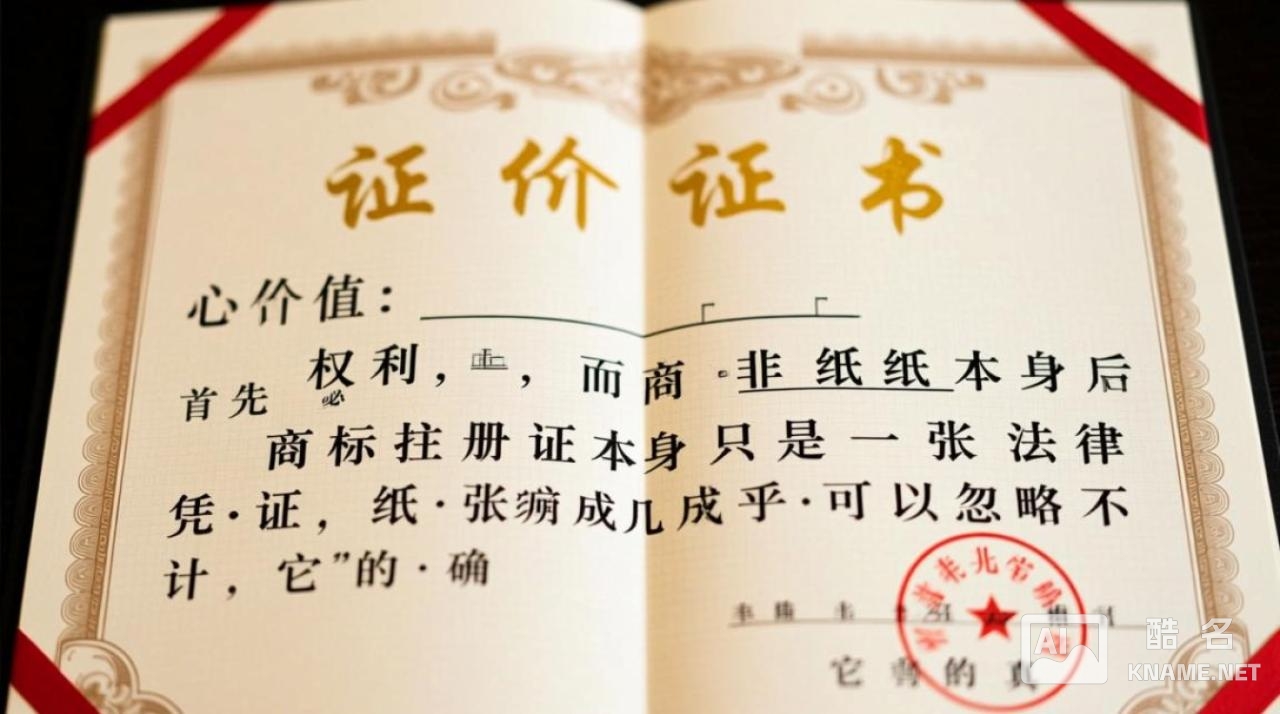 证价证书
心价值：
权利，，而商·非纸纸本身后
首先
商标拄册证本身只是一张法律
凭·证，纸·张成几成乎·可以忽略不
计，它”的·确
它的真
AI 酷名
KNAME.NET